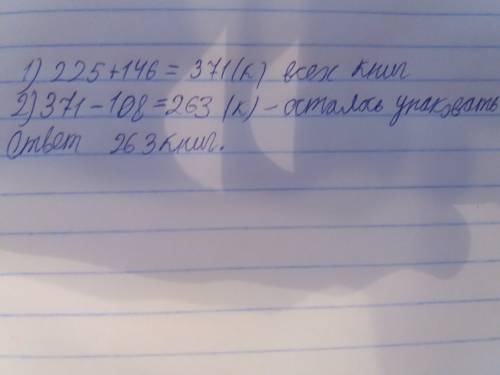 1) 225+146 = 371(к) всех книг
2) 371-108=263 (к) - осталось упаковать
Ответ 263 книг.